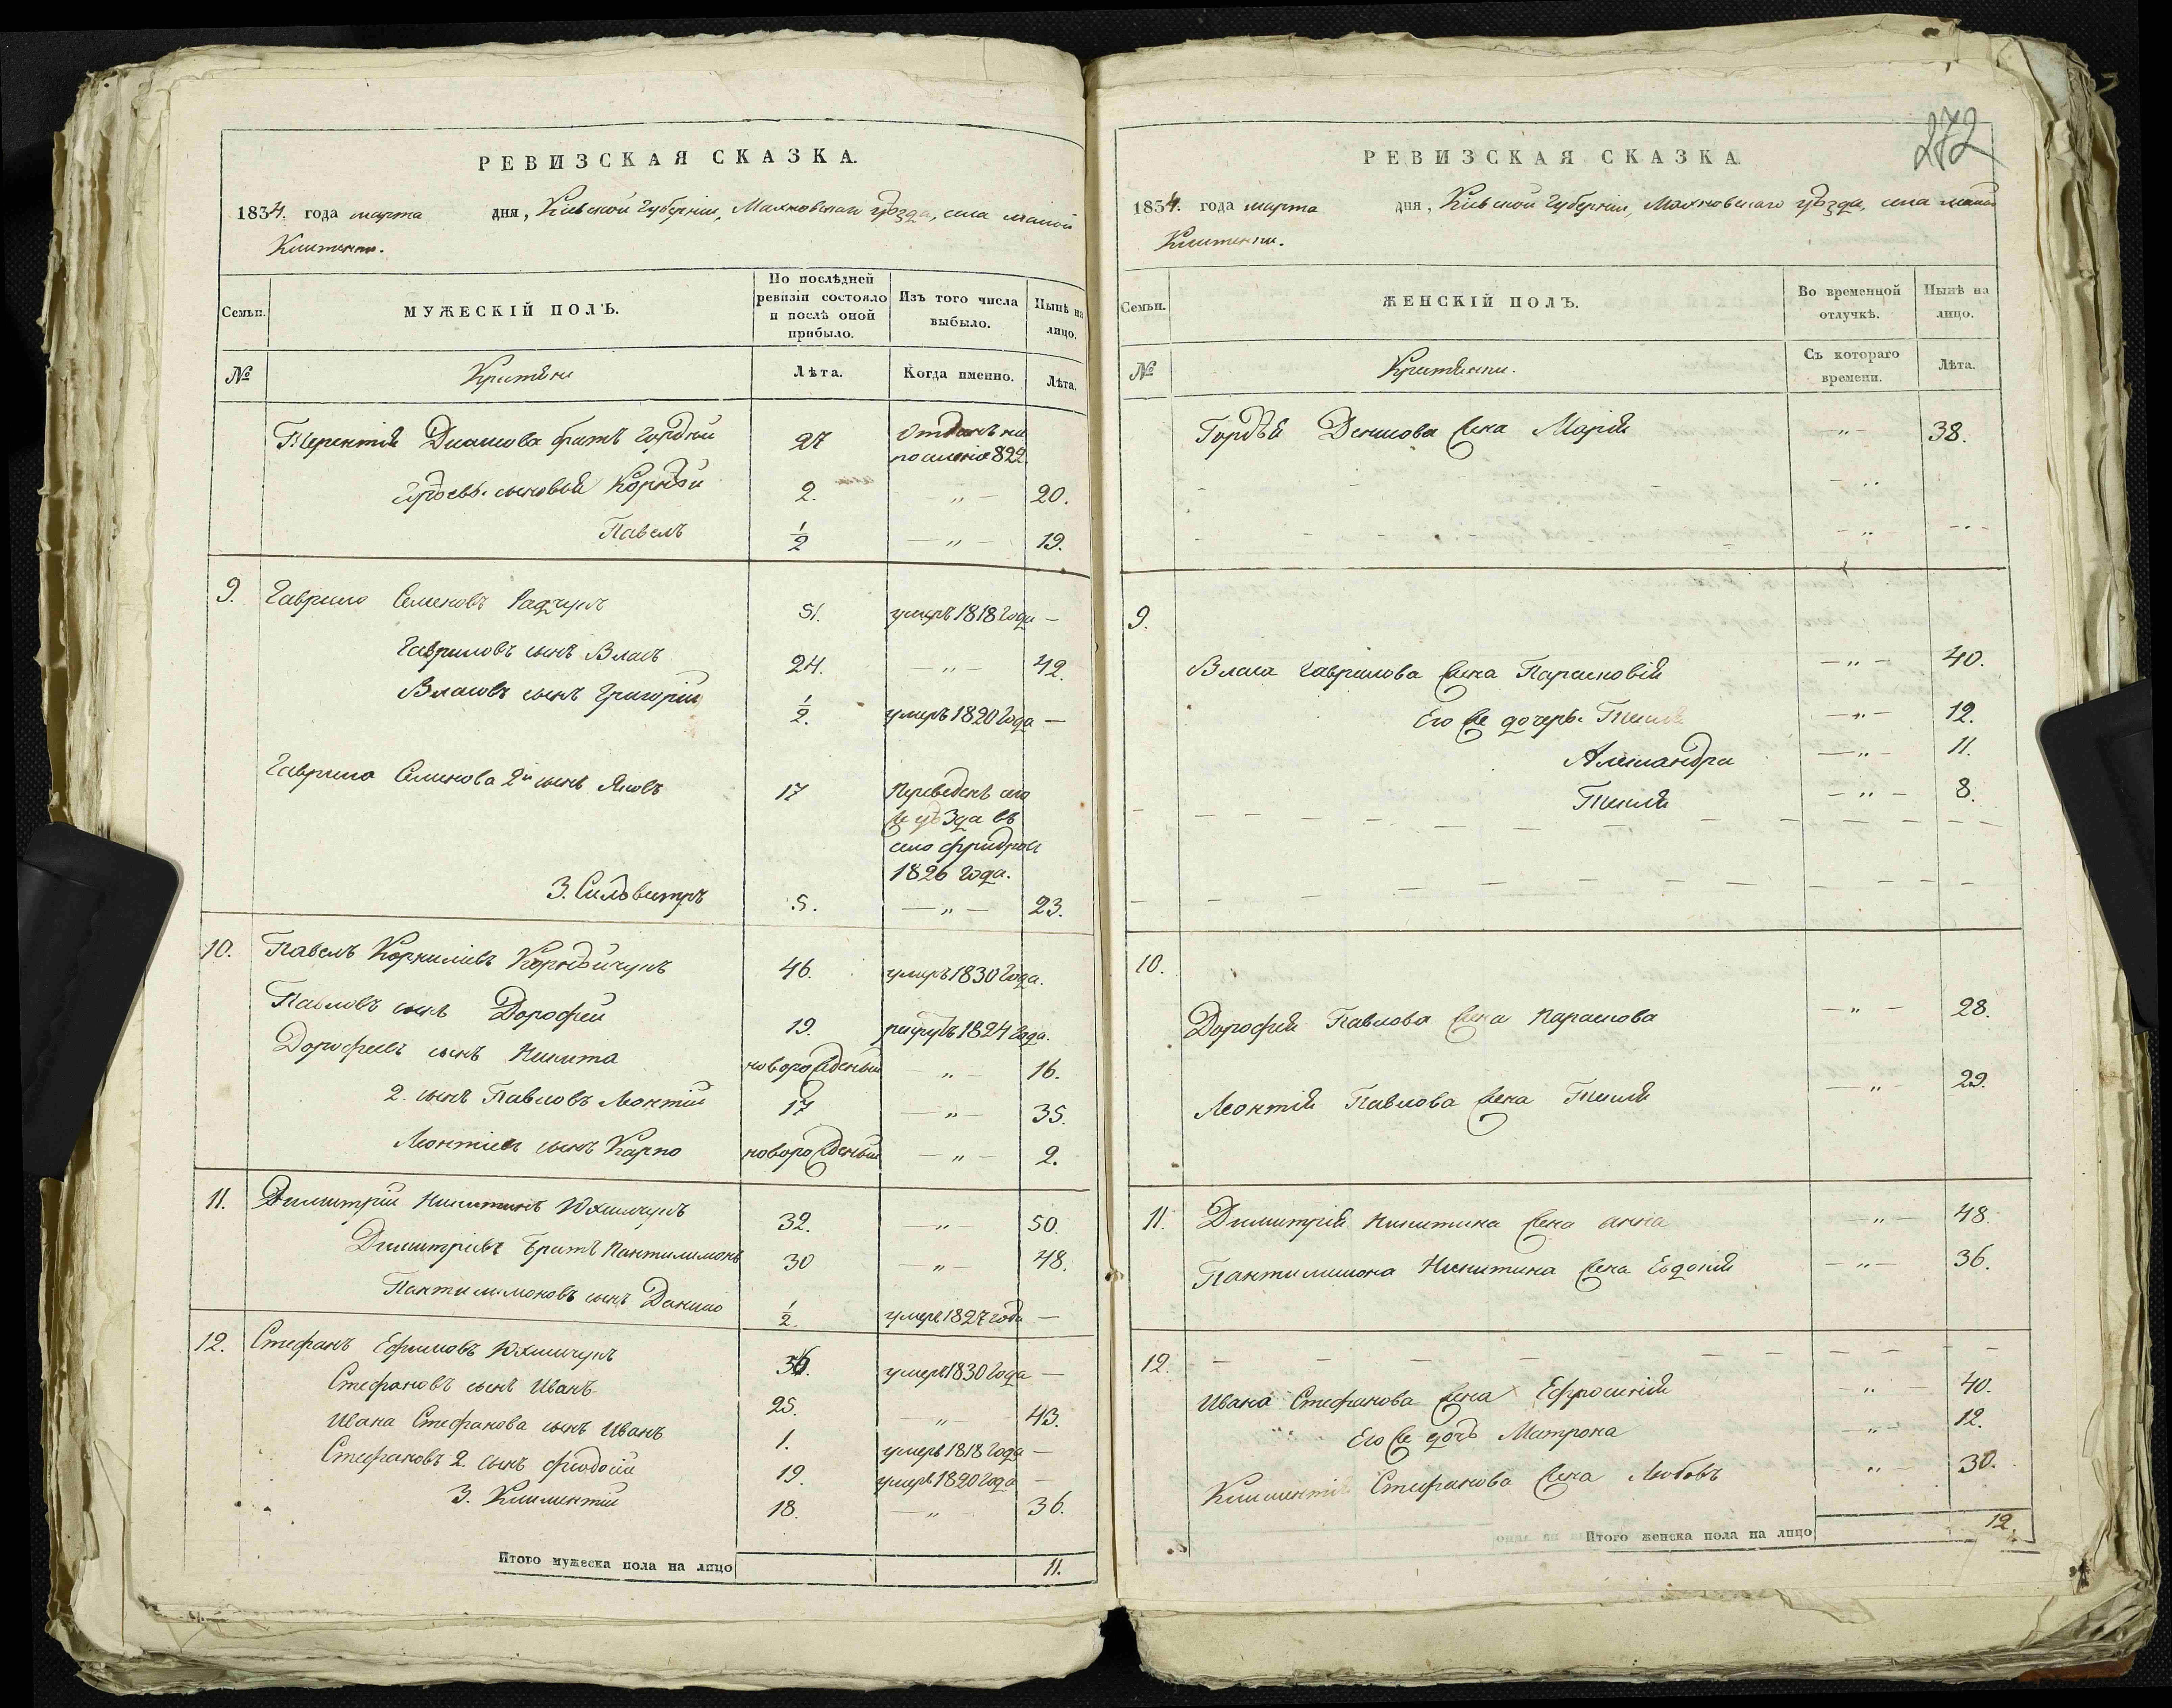 РЕВИЗСКАЯ СКАЗКА.
1834. года марта дня, Кіевской Губерніи, Махновскаго уѣзда, села малой
Клитенки.
Семьи.
МУЖЕСКІЙ ПОЛЪ.
По послѣдней ревизіи состояло и послѣ оной прибыло.
Изъ того числа выбыло.
Нынѣ на лицо.
№
Крестяне
Лѣта.
Когда именно.
Лѣта.
Терентія Денисова братъ Гордѣй 27 Отданъ на
поселение 822.
сыновья Корнѣй 2. — „ — 20.
Павелъ 1/2 — „ — 19.
9. Гаврило Семеновъ 51. умеръ 1818 Года —
Гавриловъ сынъ Власъ 24. — „ — 42.
Власовъ сынъ Григорій 1/2. умеръ 1820 Года —
Гаврила Семенова 2й сынъ Яковъ 17 Переведенъ сего
же уѣзда въ
село
1826 Года.
3. Силвестръ 5. — „ — 23.
10. Павелъ Корниліевъ Корнѣйчукъ 46. умеръ 1830 Года.
Павловъ сынъ Дорофей 19. рекрутъ 1824 Года.
Дорофеевъ сынъ Никита новорожденый — „ — 16.
2. сынъ Павловъ Леонтій 17 — „ — 35.
Леонтіевъ сынъ Карпо новорожденый — „ — 2.
11. Димитрій Никитинъ Юхимчукъ 32. — „ — 50.
Димитріевъ братъ Пантилимонъ 30 — „ — 48.
Пантилимоновъ сынъ Данило 1/2. умеръ 1827 года —
12. Стефанъ Ефимовъ Юхимчукъ 56. умеръ 1830 Года —
Стефановъ сынъ Иванъ 25. „ 43.
Ивана Стефанова сынъ Иванъ 1. умеръ 1818 Года —
Стефановъ 2. сынъ Фиодосій 19. умеръ 1820 Года —
3. Климентій 18. — „ — 36.
Итого мужеска пола на лицо 11.
272
РЕВИЗСКАЯ СКАЗКА
1834. года марта дня, Кіевской Губерніи, Махновскаго уѣзда, села малой
Клитенки.
Семьи.
ЖЕНСКІЙ ПОЛЪ.
Во временной отлучкѣ.
Нынѣ на лицо.
№
Крестянки.
Съ котораго времени.
Лѣта.
Гордѣя Денисова жена Марія — „ — 38.
9.
Власа Гаврилова жена Парасковія — „ — 40.
Его же дочерь. Текля — „ — 12.
Александра — „ — 11.
Текля — „ — 8.
10.
Дорофея Павлова жена Параскова — „ — 28.
Леонтія Павлова жена Текля — „ — 29.
11. Димитрія Никитина жена анна — „ — 48.
Пантилимона Никитина жена Евдокія — „ — 36.
12.
Ивана Стефанова жена Ефросинія „ 40.
Его же дочь Матрона — „ — 12.
Климентія Стефанова жена Любовъ „ 30.
Итого женска пола на лицо 12.